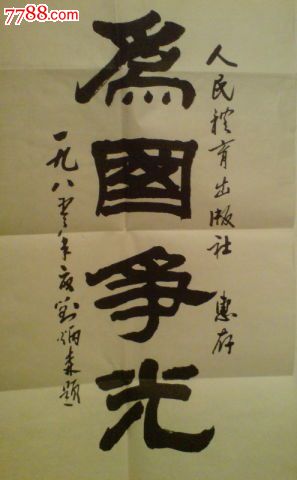 7788.com
人民體育出版社 惠存
為國爭光
一九八年夏劉炳森題